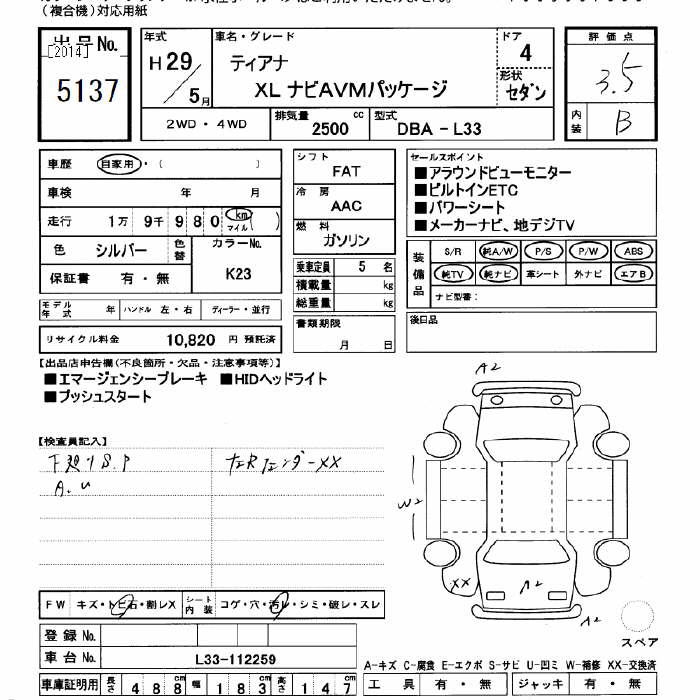 (複合機)対応用紙
出品No.
[2014]
5137
年式
H29/5月
車名・グレード
ティアナ
XL ナビAVMパッケージ
ドア
4
形状
セダン
評価点
3.5
内装
B
2WD・4WD
排気量
2500 cc
型式
DBA - L33
車歴 自家用・( )
車検 年 月
走行 1万 9千 9 8 0 km マイル ( )
色 シルバー 色替 カラーNo.
K23
保証書 有・無
モデル年式 年 ハンドル 左・右 ディーラー・並行
リサイクル料金 10,820 円 預託済
シフト
FAT
冷房
AAC
燃料
ガソリン
乗車定員 5 名
積載量 kg
総重量 kg
書類期限
月 日
セールスポイント
■アラウンドビューモニター
■ビルトインETC
■パワーシート
■メーカーナビ、地デジTV
装備品
S/R 純A/W P/S P/W ABS
純TV 純ナビ 革シート 外ナビ エアB
ナビ型番:
後日品
【出品店申告欄(不良箇所・欠品・注意事項等)】
■エマージェンシーブレーキ ■HIDヘッドライト
■プッシュスタート
【検査員記入】
下廻りS.P
A.U
左Rフェンダ-XX
A2
W2
XX
A2
A2
スペア
FW キズ・トビ石・割レX シート内装 コゲ・穴・汚レ・シミ・破レ・スレ
登録No.
車台No. L33-112259
車庫証明用 長さ 488 cm 幅 183 cm 高さ 147 cm
A-キズ C-腐食 E-エクボ S-サビ U-凹ミ W-補修 XX-交換済
工具 有・無 ジャッキ 有・無